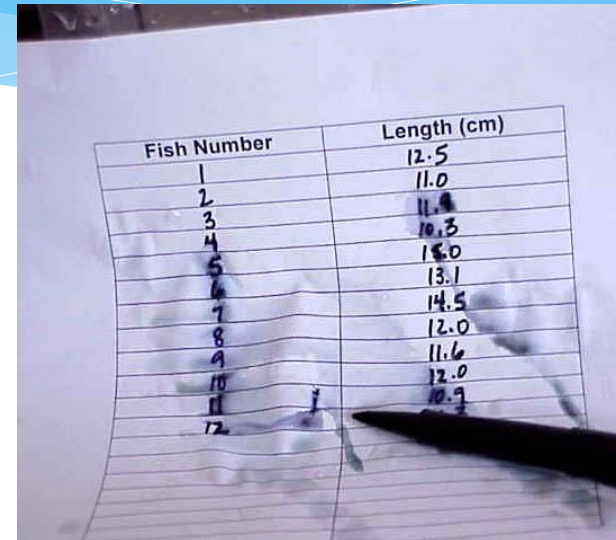 Fish Number Length (cm)
1 12.5
2 11.0
3
4 10.3
5
6 13.1
7 14.5
8 12.0
9 11.6
10 12.0
11 10.9
12